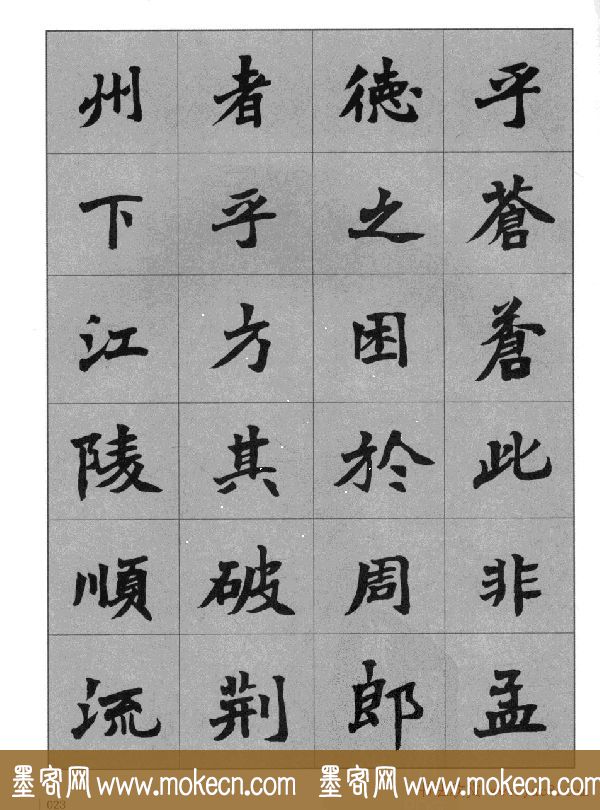 乎蒼蒼此非孟
德之困於周郎
者乎方其破荆
州下江陵順流
墨客网 www.mokecn.com 墨客网 www.mokecn.com
023